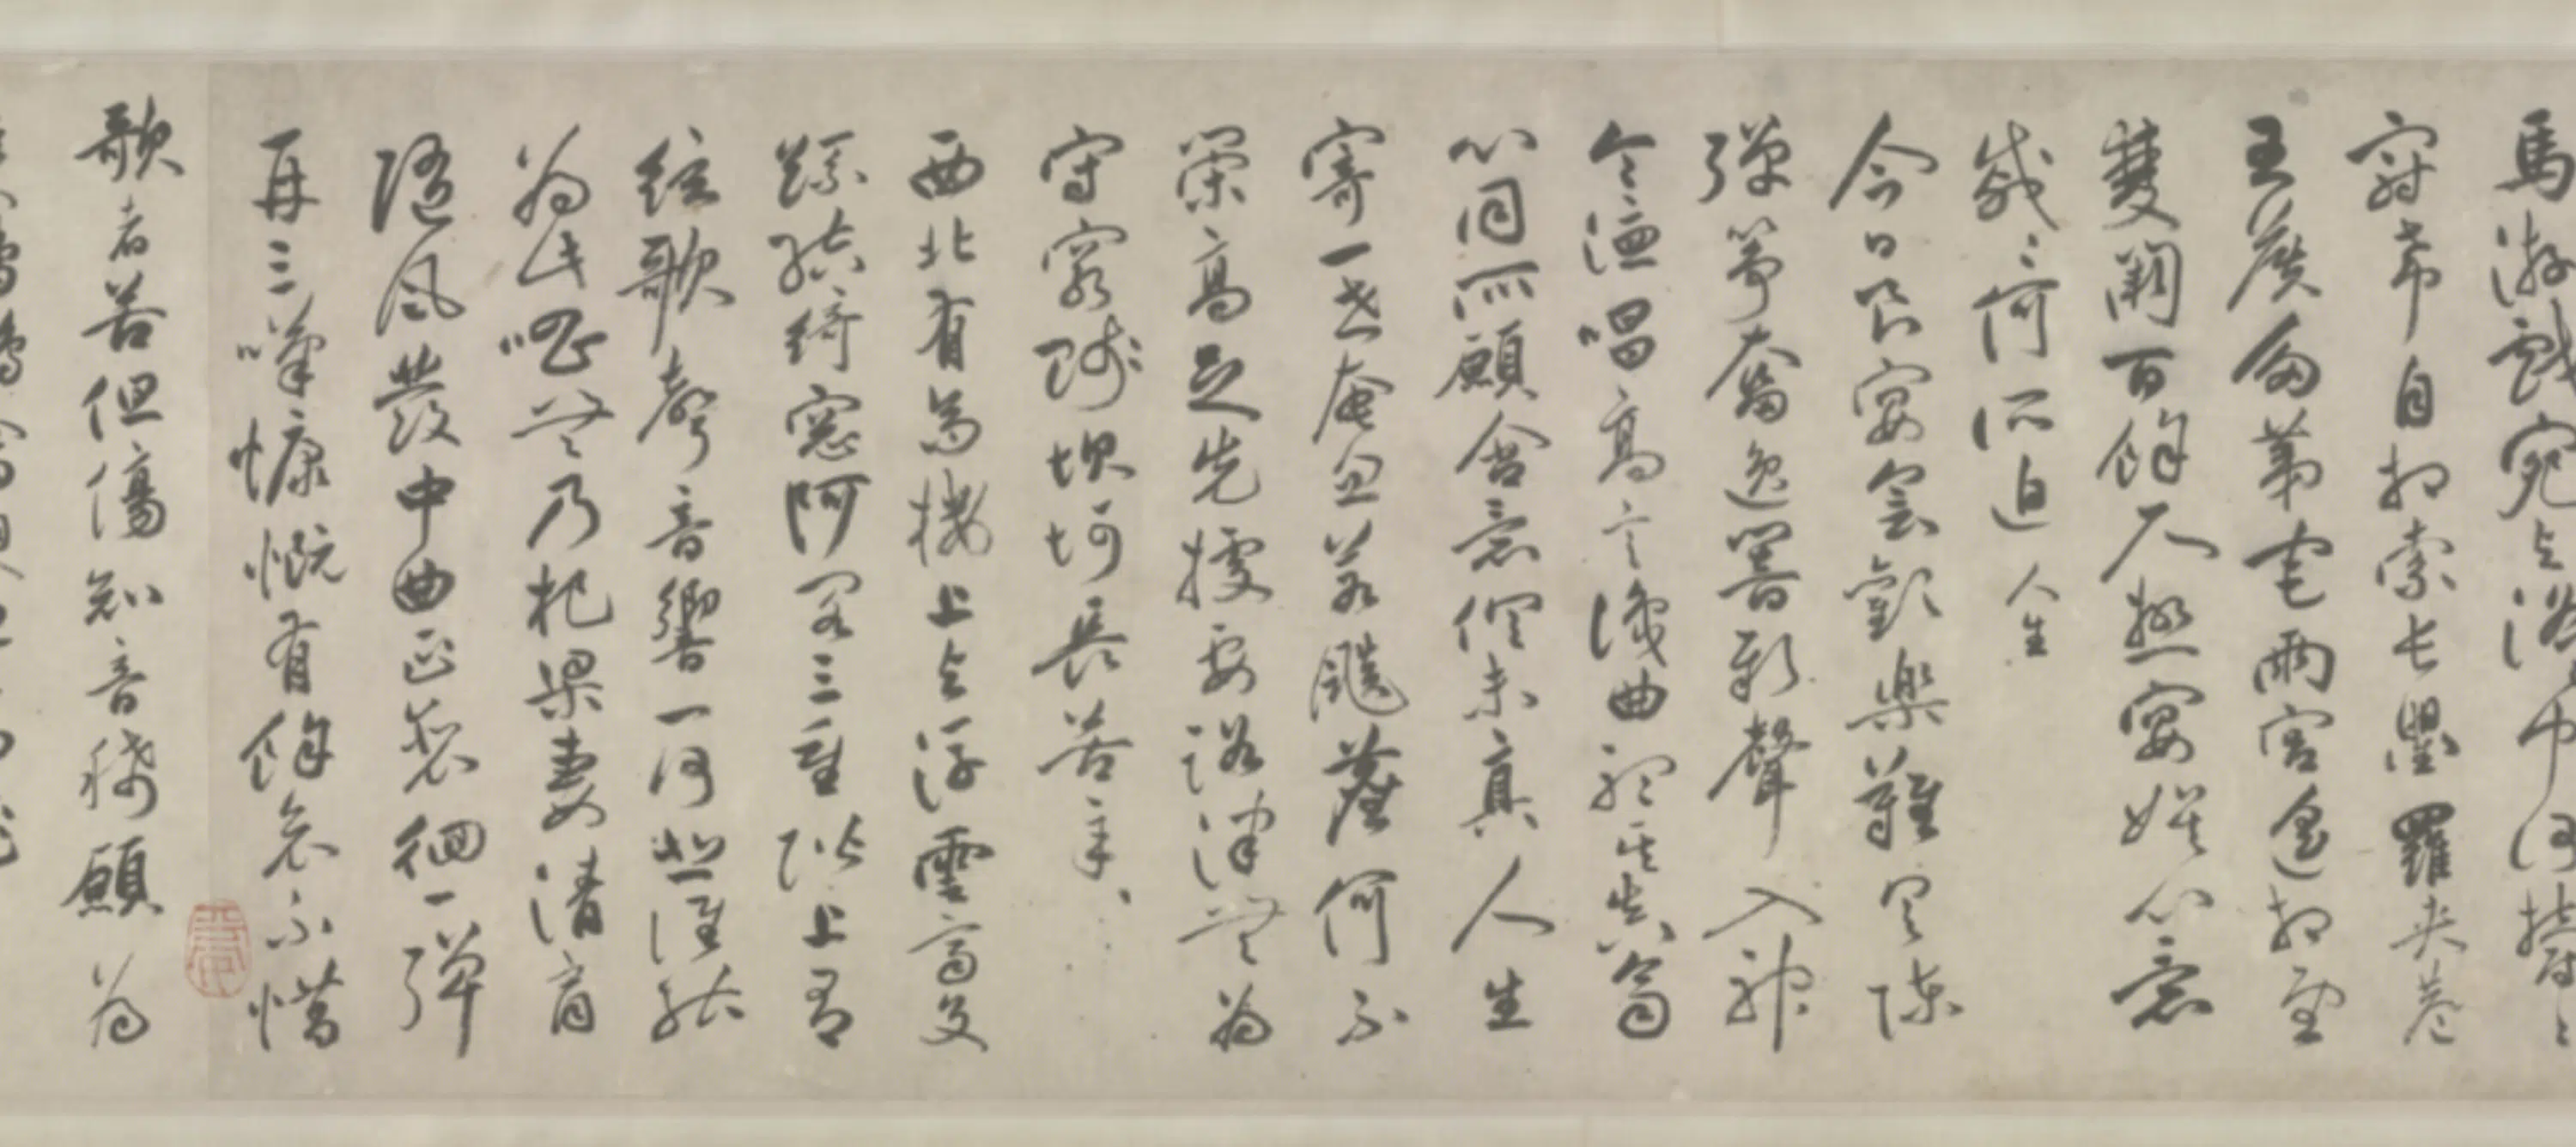 馬游戲宛与洛〻中何鬱〻
冠帶自相索長衢羅夾巷
王侯多第宅兩宮遙相望
雙闕百餘尺極宴娛心意
戚〻何所迫 人生
今日良宴會歡樂難具陳
彈箏奮逸響新聲入神
令德唱高言識曲聽其真齊
心同所願含意俱未真人生
寄一世奄忽若飆塵何不
策高足先據要路津無為
守窮賤坎坷長苦辛
西北有高樓上与浮雲齊交
疏結綺窓阿閣三重階上有
絃歌聲音響一何悲誰能
為此唱無乃杞梁妻清商
隨風發中曲正裴徊一彈
再三嘆慷慨有餘哀不惜
歌者苦但傷知音稀願為